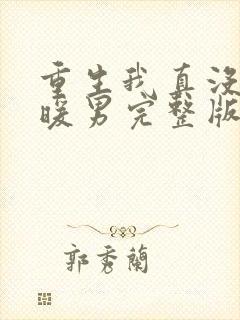 重生我真没
暖男完整版
郭秀蘭